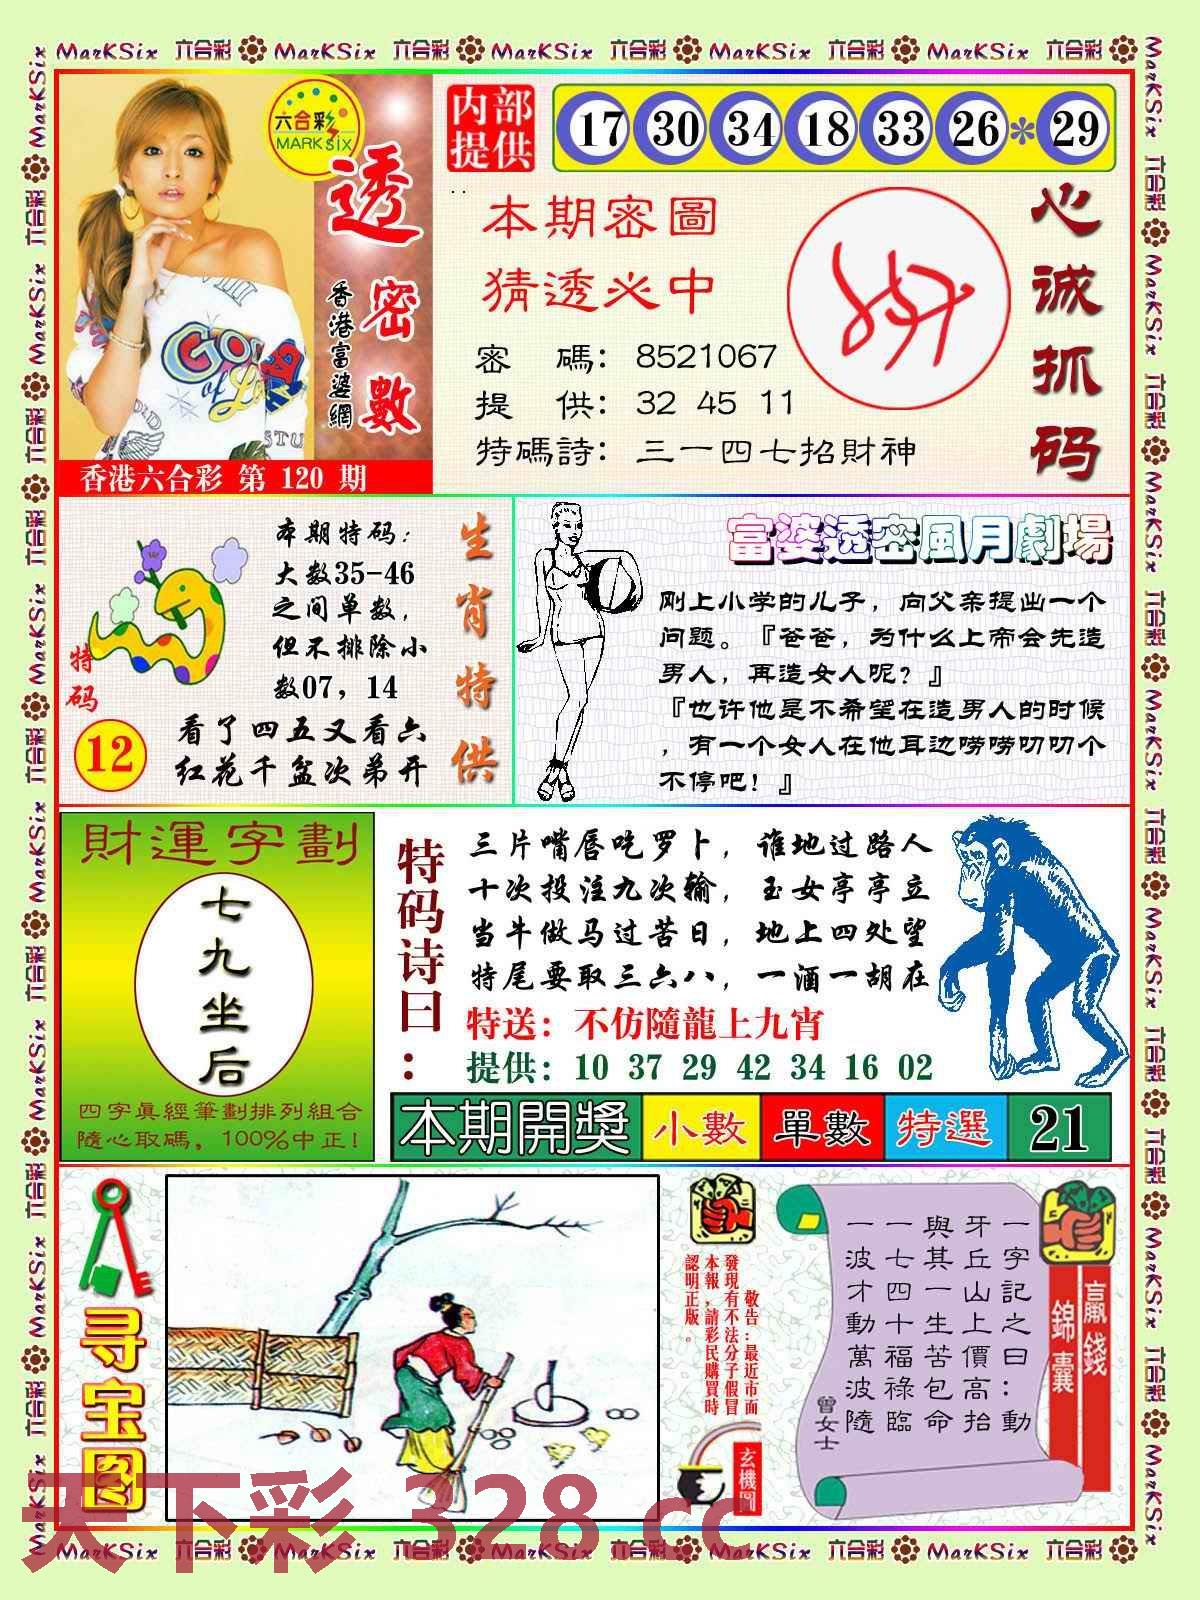 MarKSix 六合彩 MarKSix 六合彩 MarKSix 六合彩 MarKSix 六合彩 MarKSix 六合彩
六合彩
MARK SIX
透密數
香港富婆網
香港六合彩 第 120 期
内部提供
17 30 34 18 33 26 * 29
本期密圖
猜透必中
密 碼: 8521067
提 供: 32 45 11
特碼詩: 三一四七招財神
心诚抓码
本期特码:
大数35-46
之间单数,
但不排除小
数07, 14
特码
12
看了四五又看六
红花千盆次弟开
生肖特供
富婆透密風月劇場
刚上小学的儿子，向父亲提出一个
问题。『爸爸，为什么上帝会先造
男人，再造女人呢？』
『也许他是不希望在造男人的时候
，有一个女人在他耳边唠唠叨叨个
不停吧！』
財運字劃
七九坐后
四字真經筆劃排列組合
隨心取碼，100%中正!
特码诗曰:
三片嘴唇吃罗卜，谁地过路人
十次投注九次输，玉女亭亭立
当牛做马过苦日，地上四处望
特尾要取三六八，一酒一胡在
特送: 不仿隨龍上九宵
提供: 10 37 29 42 34 16 02
本期開獎 小數 單數 特選 21
寻宝图
敬告:最近市面
發現有不法分子假冒
本報,請彩民購買時
認明正版。
玄機圖
一字記之曰:動
牙丘山上價高抬
與其一生苦包命
一七四十福祿臨
一波才動萬波隨
曾女士
贏錢
錦囊
天下彩 328.cc
MarKSix 六合彩 MarKSix 六合彩 MarKSix 六合彩 MarKSix 六合彩 MarKSix 六合彩